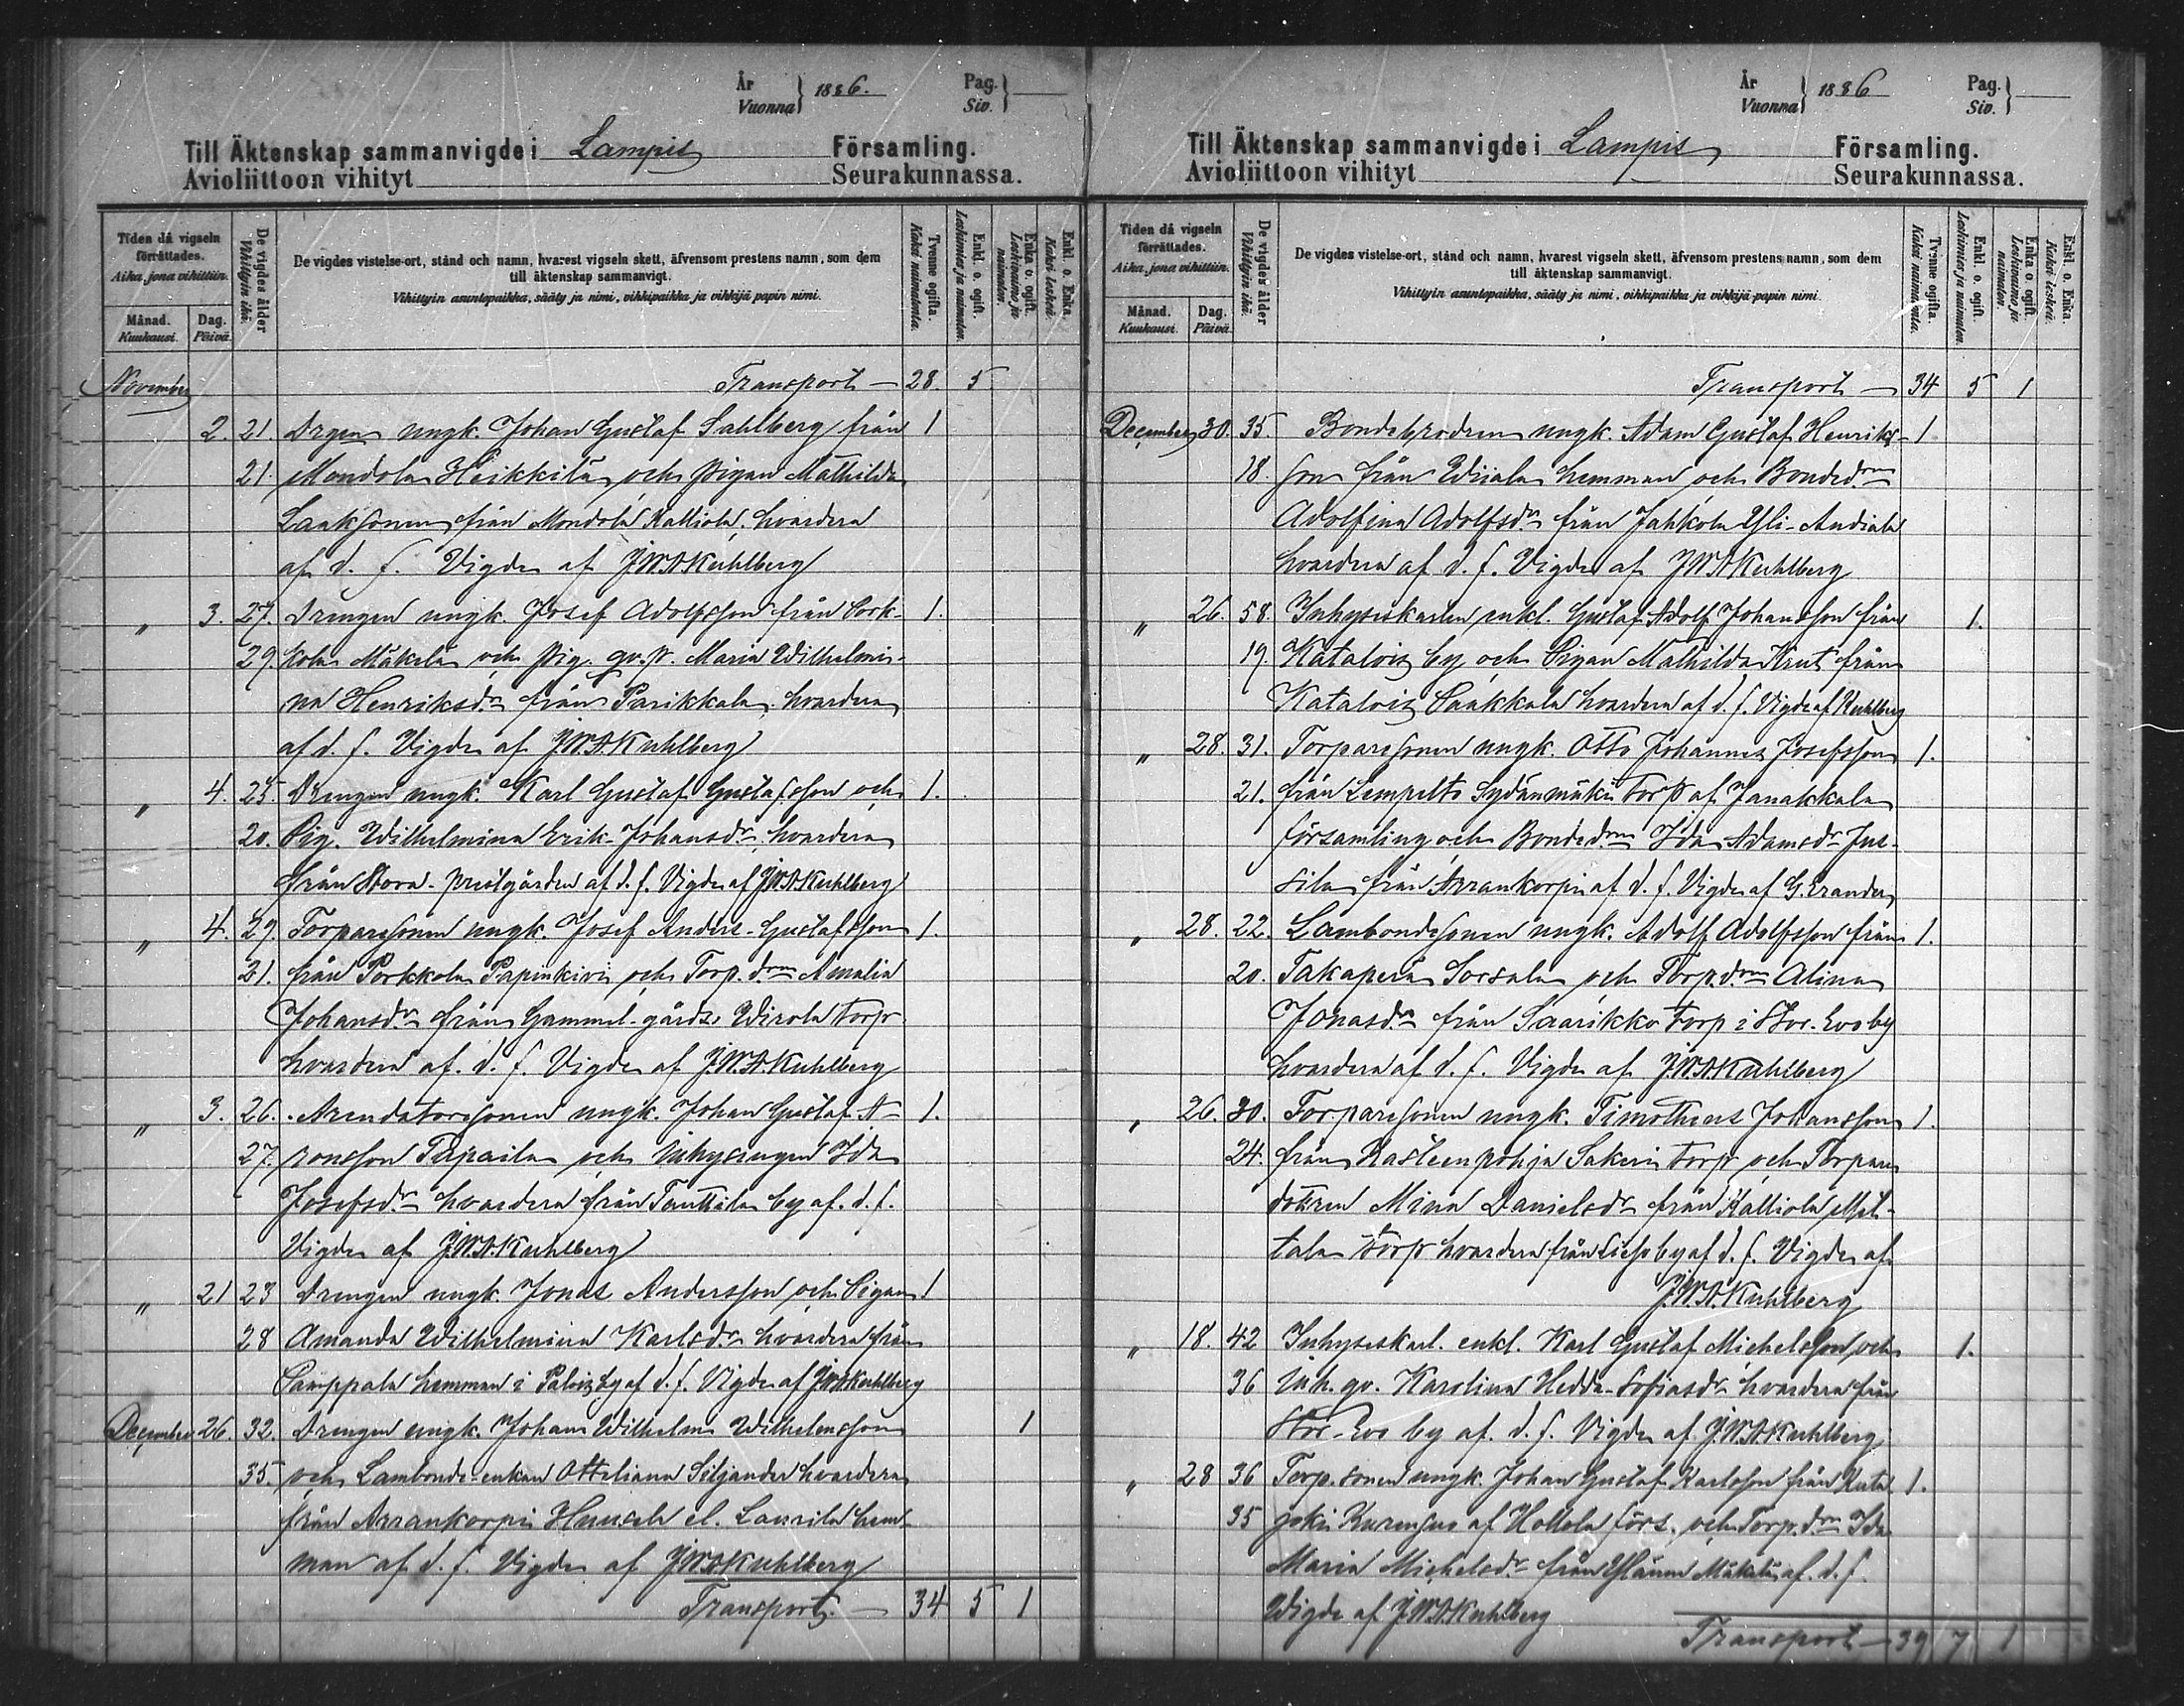 År
Vuonna } 1886.
Pag.
Siv. }
Till Äktenskap sammanvigde i Lampis Församling.
Avioliittoon vihityt Seurakunnassa.
Tiden då vigseln förrättades.
Aika, jona vihittiin.
Månad.
Kuukausi.
Dag.
Päivä.
De vigdes ålder
Vihittyin ikä.
De vigdes vistelse-ort, stånd och namn, hvarest vigseln skett, äfvensom prestens namn, som dem
till äktenskap sammanvigt.
Vihittyin asuntopaikka, sääty ja nimi, vihkipaikka ja vihkijä papin nimi.
Tvenne ogifta.
Kaksi naimatonta.
Enkl. o. ogift.
Leskimies ja naimaton.
Enka o. ogift.
Leskivaimo ja naimaton.
Enkl. o. Enka.
Kaksi leskeä.
November Transport — 28. 5
2. 21. Drgen ungk. Johan Gustaf Sahlberg från 1
21. Mondola Heikkilä och pigan Mathilda
Laaksonen från Mondola Kalliola, hvardera
af d. f. Vigde af J.W.A.Kuhlberg
" 3. 27. Drengen ungk. Josef Adolfsson från Pork- 1.
29. kola Mäkelä och pig. qv.p. Maria Wilhelmi-
na Henriksdr från Parikkala hvardera
af d. f. Vigde af J.W.A.Kuhlberg
" 4. 25. Drengen ungk. Karl Gustaf Gustafsson och 1.
20. Pig. Wilhelmina Erik-Johansdr hvardera
från Stora-prestgården af d. f. Vigde af J.W.A.Kuhlberg
" 4. 29. Torparesonen ungk. Josef Anders-Gustafsson 1.
21. från Porkkola Papinkivi och Torp.drn Amalia
Johansdr från Gammel-gårds Wirola torp
hvardera af. d. f. Vigde af J.W.A.Kuhlberg
" 3. 26. Arendatorssonen ungk. Johan Gustaf A- 1.
27. ronsson Tapaila och Inhysingen Ida
Josefsdr hvardera från Tanttala by af. d. f.
Vigde af J.W.A.Kuhlberg
" 21 23 Drengen ungk. Jonas Andersson och Pigan 1
28 Amanda Wilhelmina Karlsdr hvardera från
Pamppala hemman i Palois by af d. f. Vigde af J.W.A.Kuhlberg
December 26. 32. Drengen ungk. Johan Wilhelm Wilhelmsson 1
35. och Lambonde-enkan Otteliana Siljander hvardera
från Arrankorpi el. Laurila hem-
man af d. f. Vigde af J.W.A.Kuhlberg
Transport. — 34 5 1
År
Vuonna } 1886
Pag.
Siv. }
Till Äktenskap sammanvigde i Lampis Församling.
Avioliittoon vihityt Seurakunnassa.
Tiden då vigseln förrättades.
Aika, jona vihittiin.
Månad.
Kuukausi.
Dag.
Päivä.
De vigdes ålder
Vihittyin ikä.
De vigdes vistelse-ort, stånd och namn, hvarest vigseln skett, äfvensom prestens namn, som dem
till äktenskap sammanvigt.
Vihittyin asuntopaikka, sääty ja nimi, vihkipaikka ja vihkijä papin nimi.
Tvenne ogifta.
Kaksi naimatonta.
Enkl. o. ogift.
Leskimies ja naimaton.
Enka o. ogift.
Leskivaimo ja naimaton.
Enkl. o. Enka.
Kaksi leskeä.
Transport — 34 5 1
December 30. 35. Bondebrodren ungk. Adam Gustaf Henriks- 1
18. son från Wiiala hemman och Bonded.rn
Adolfina Adolfsdr från Jahkola Yli-Andiala
hvardera af d. f. Vigde af J.W.A.Kuhlberg
" 26. 58. Inhyseskarlen enkl. Gustaf Adolf Johansson från 1.
19. Katalois by och Pigan Mathilda Knut från
Katalois Paakkala hvardera af d. f. Vigde af Kuhlberg
" 28. 31. Torparesonen ungk. Otto Johannes Josefsson 1.
21. från Lempelto Sydänmäki torp af Janakkala
församling och Bonded.rn Ida Adamsdr Jus-
sila från Arrankorpi af d. f. Vigde af G. Erander
" 28. 22. Lambondesonen ungk. Adolf Adolfsson från 1.
20. Takaperä Sorsala och Torp.drn Alina
Jonasdr från Saarikko torp i Stor. Evo by
hvardera af d. f. Vigde af J.W.A.Kuhlberg
" 26. 30. Torparesonen ungk. Timotheus Johansson 1.
24. från Rasteenpohja Sakeri torp och Torpare
dottren Mina Danielsdr från Kalliola
torp hvardera från by af d. f. Vigde af
J.W.A.Kuhlberg
" 18. 42 Inhyseskarl. enkl. Karl Gustaf Michelsson och 1.
36 Inh. qv. Karolina Hedda-Sofiasdr hvardera från
Stor-Evo by af. d. f. Vigde af J.W.A.Kuhlberg
" 28 36 Torp.sonen ungk. Johan Gustaf Karlsson från Kuta 1.
35 joki af Hollola förs. och Torp.drn Ida
Maria Michelsdr från Mäkelä af. d. f.
Wigde af J.W.A.Kuhlberg
Transport — 39 7 1